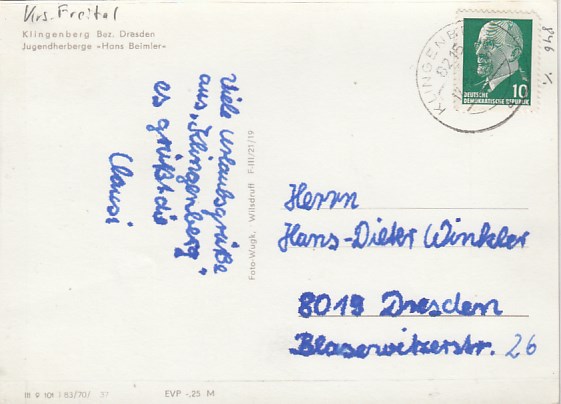 Krs. Freital
Klingenberg Bez. Dresden
Jugendherberge »Hans Beimler«
Viele Urlaubsgrüße
aus „Klingenberg"
es grüßt die
Clausi
Foto-Wugk, Wilsdruff F-III/21/19
KLINGENBE
8215
10
DEUTSCHE
DEMOKRATISCHE REPUBLIK
846
Herrn
Hans-Dieter Winkler
8019 Dresden
Blasewitzerstr. 26
III 9 101 183/70/ 37
EVP -,25 M